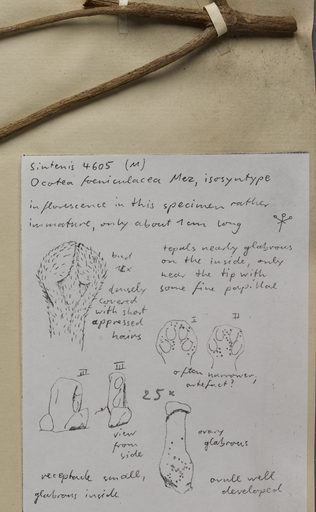 Sintenis 4605 (M)
Ocotea foeniculacea Mez, isosyntype
inflorescence in this specimen rather
immature, only about 1 cm long
bud
densely
covered
with short
appressed
hairs
tepals nearly glabrous
on the inside, only
near the tip with
some fine papillae
I
II
often narrower,
artefact?
III
III
25x
view
from
side
ovary
glabrous
receptacle small,
glabrous inside
ovule well
developed